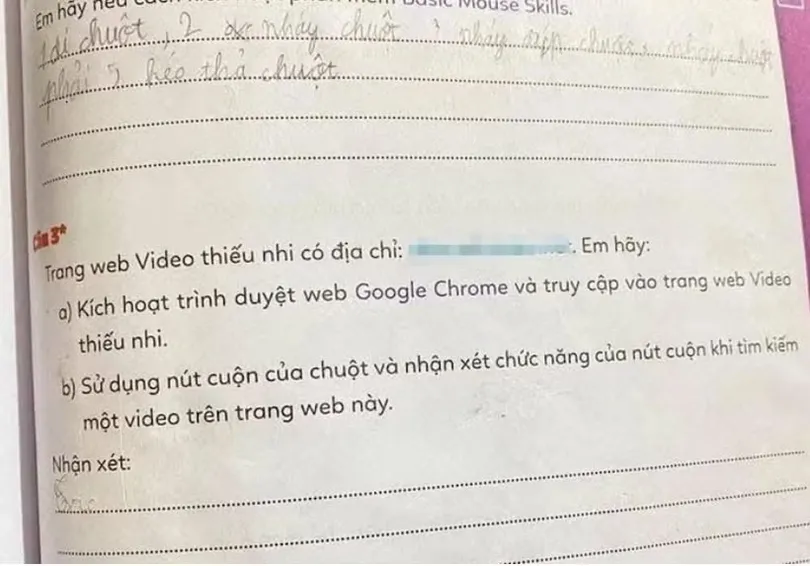 Em hãy nêu các
Basic Mouse Skills.
chuột, 2 nháy chuột
phải 5 kéo thả chuột
Câu 3*
Trang web Video thiếu nhi có địa chỉ: . Em hãy:
a) Kích hoạt trình duyệt web Google Chrome và truy cập vào trang web Video
thiếu nhi.
b) Sử dụng nút cuộn của chuột và nhận xét chức năng của nút cuộn khi tìm kiếm
một video trên trang web này.
Nhận xét: